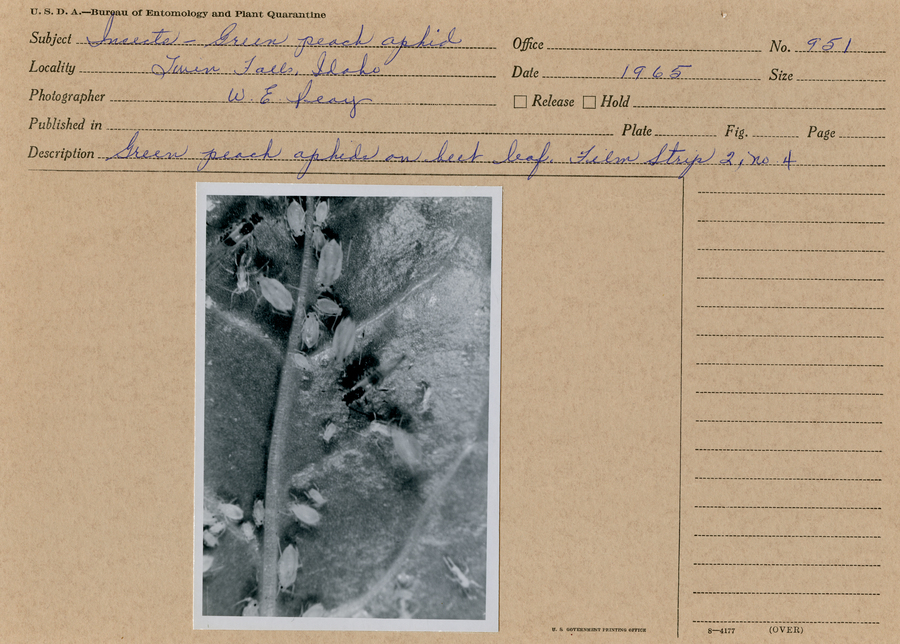 U. S. D. A.—Bureau of Entomology and Plant Quarantine
Subject Insects - Green peach aphid Office No. 951
Locality Twin Falls, Idaho Date 1965 Size
Photographer W. E. Peay Release Hold
Published in Plate Fig. Page
Description Green peach aphids on beet leaf. Film Strip 2, no 4
U. S. GOVERNMENT PRINTING OFFICE 8—4177 (OVER)